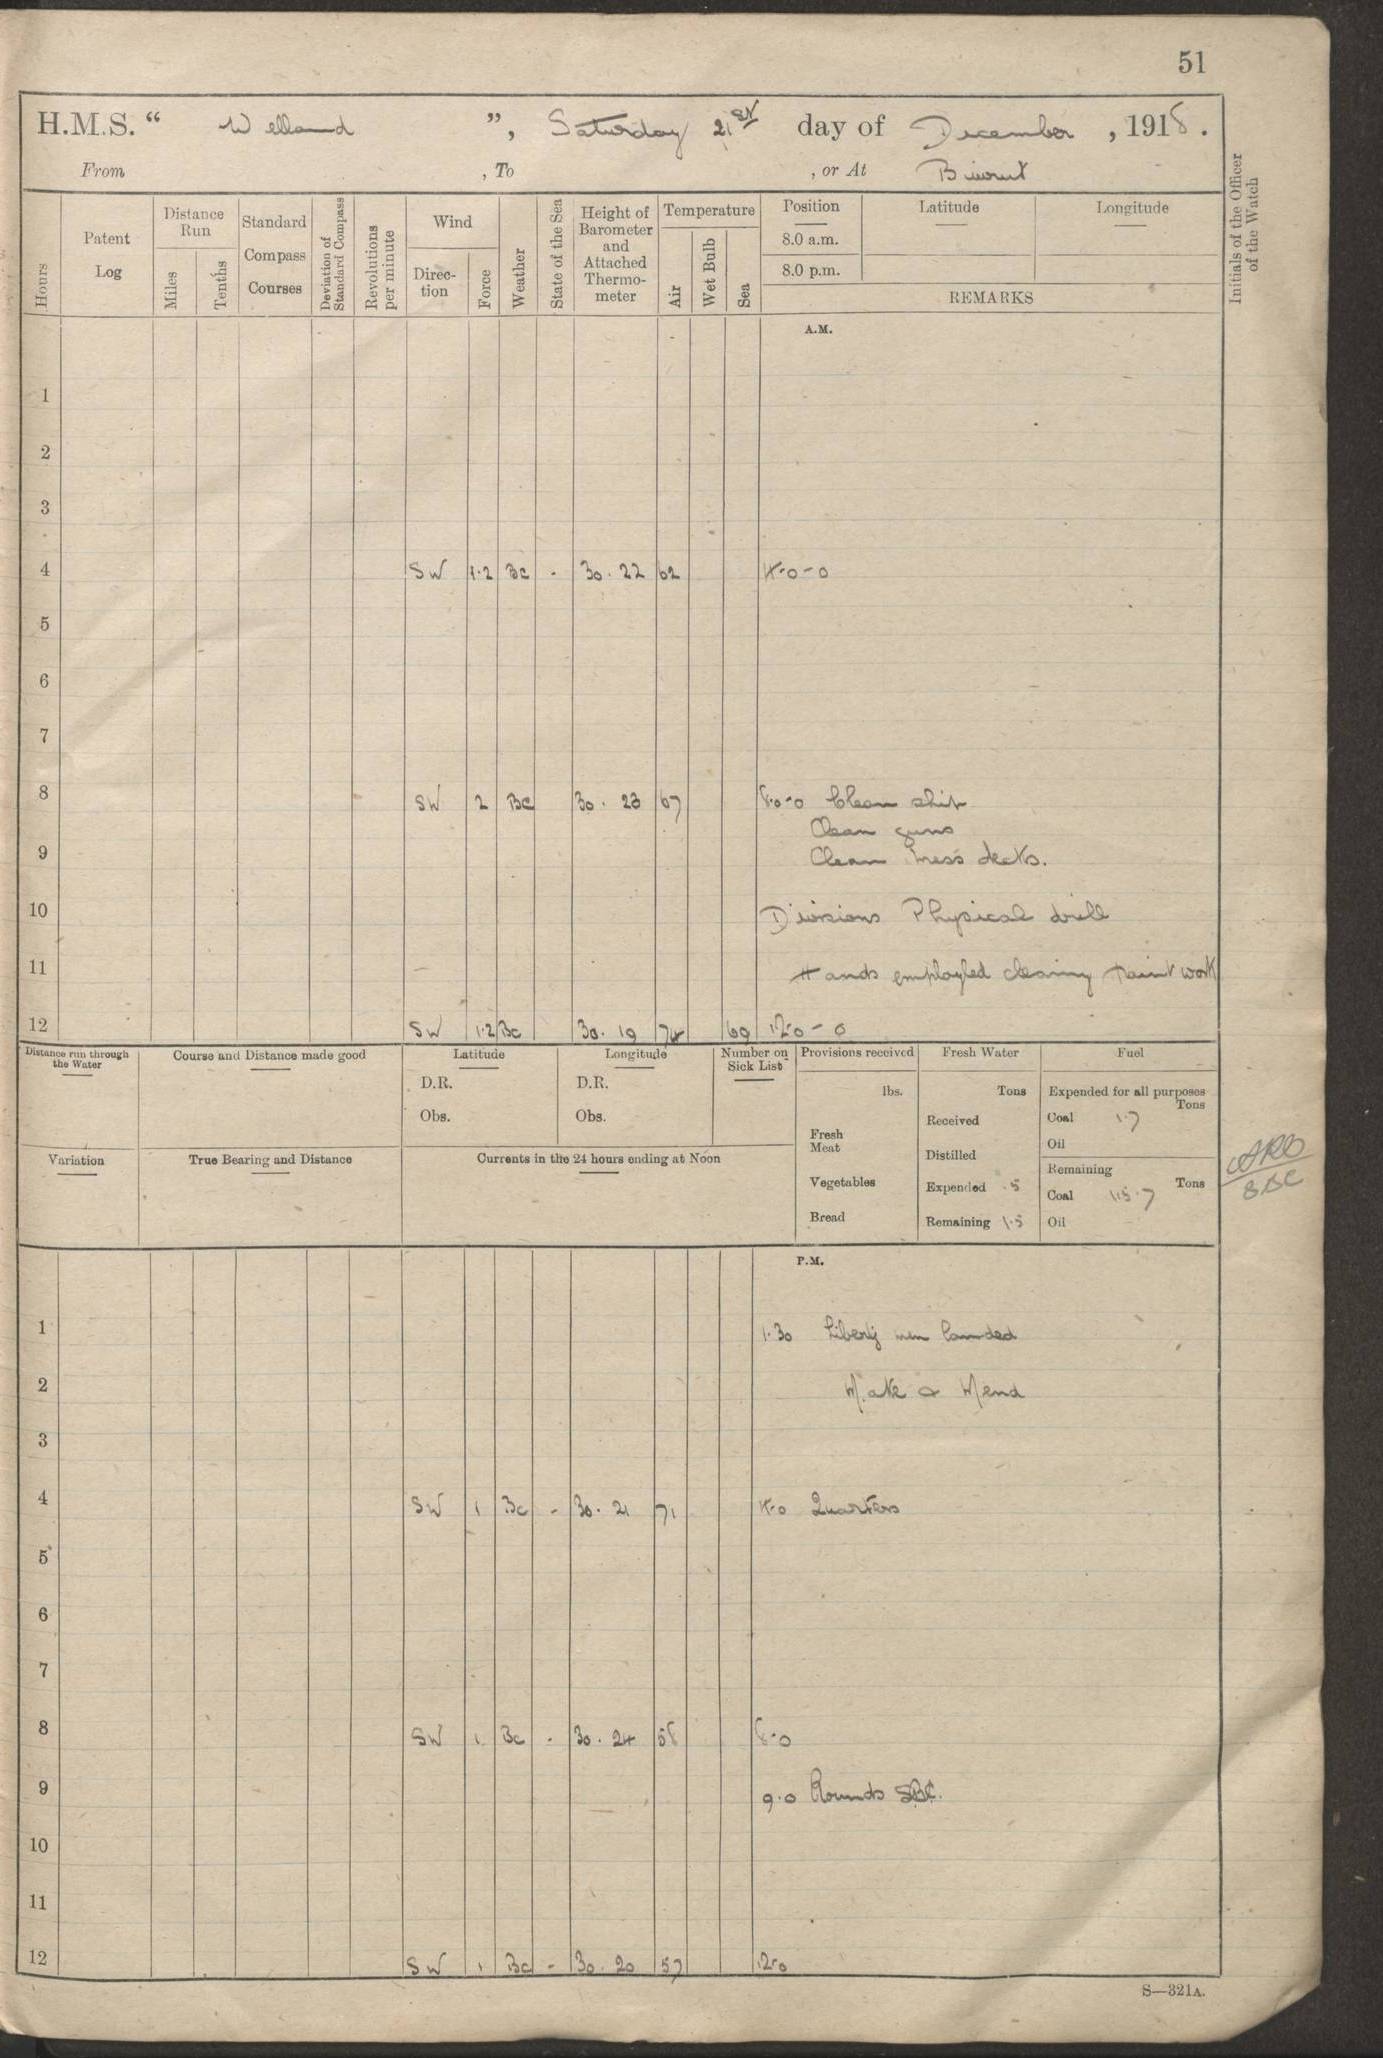 51
H.M.S. “ Welland ”, Saturday 21st day of December , 1918 .
From , To , or At Bierut
Hours
Patent Log
Distance Run
Miles
Tenths
Standard Compass Courses
Deviation of Standard Compass
Revolutions per minute
Wind
Direction
Force
Weather
State of the Sea
Height of Barometer and Attached Thermometer
Temperature
Air
Wet Bulb
Sea
Position
8.0 a.m.
8.0 p.m.
Latitude
Longitude
REMARKS
Initials of the Officer of the Watch
A.M.
1
2
3
4 SW 1.2 Bc - 30.22 62 4-0-0
5
6
7
8 SW 2 Bc 30.23 67 8-0-0 Clean ship
Clean guns
9 Clean mess decks.
10 Divisions Physical drill
11 Hands employed cleaning paint work
12 SW 1.2 Bc 30.19 74 69 12-0-0
Distance run through the Water
Course and Distance made good
Latitude
D.R.
Obs.
Longitude
D.R.
Obs.
Number on Sick List
Provisions received
lbs.
Fresh Meat
Vegetables
Bread
Fresh Water
Tons
Received
Distilled
Expended .5
Remaining 1.5
Fuel
Expended for all purposes
Tons
Coal 1.7
Oil
Remaining
Tons
Coal 115.7
Oil
SBC
Variation
True Bearing and Distance
Currents in the 24 hours ending at Noon
P.M.
1 1.30 Liberty men landed
2 Make & Mend
3
4 SW 1 Bc - 30.21 71 4-0 Quarters
5
6
7
8 SW 1 Bc - 30.24 58 8-0
9 9.0 Rounds SBC.
10
11
12 SW 1 Bc - 30.20 57 12-0
S—321A.